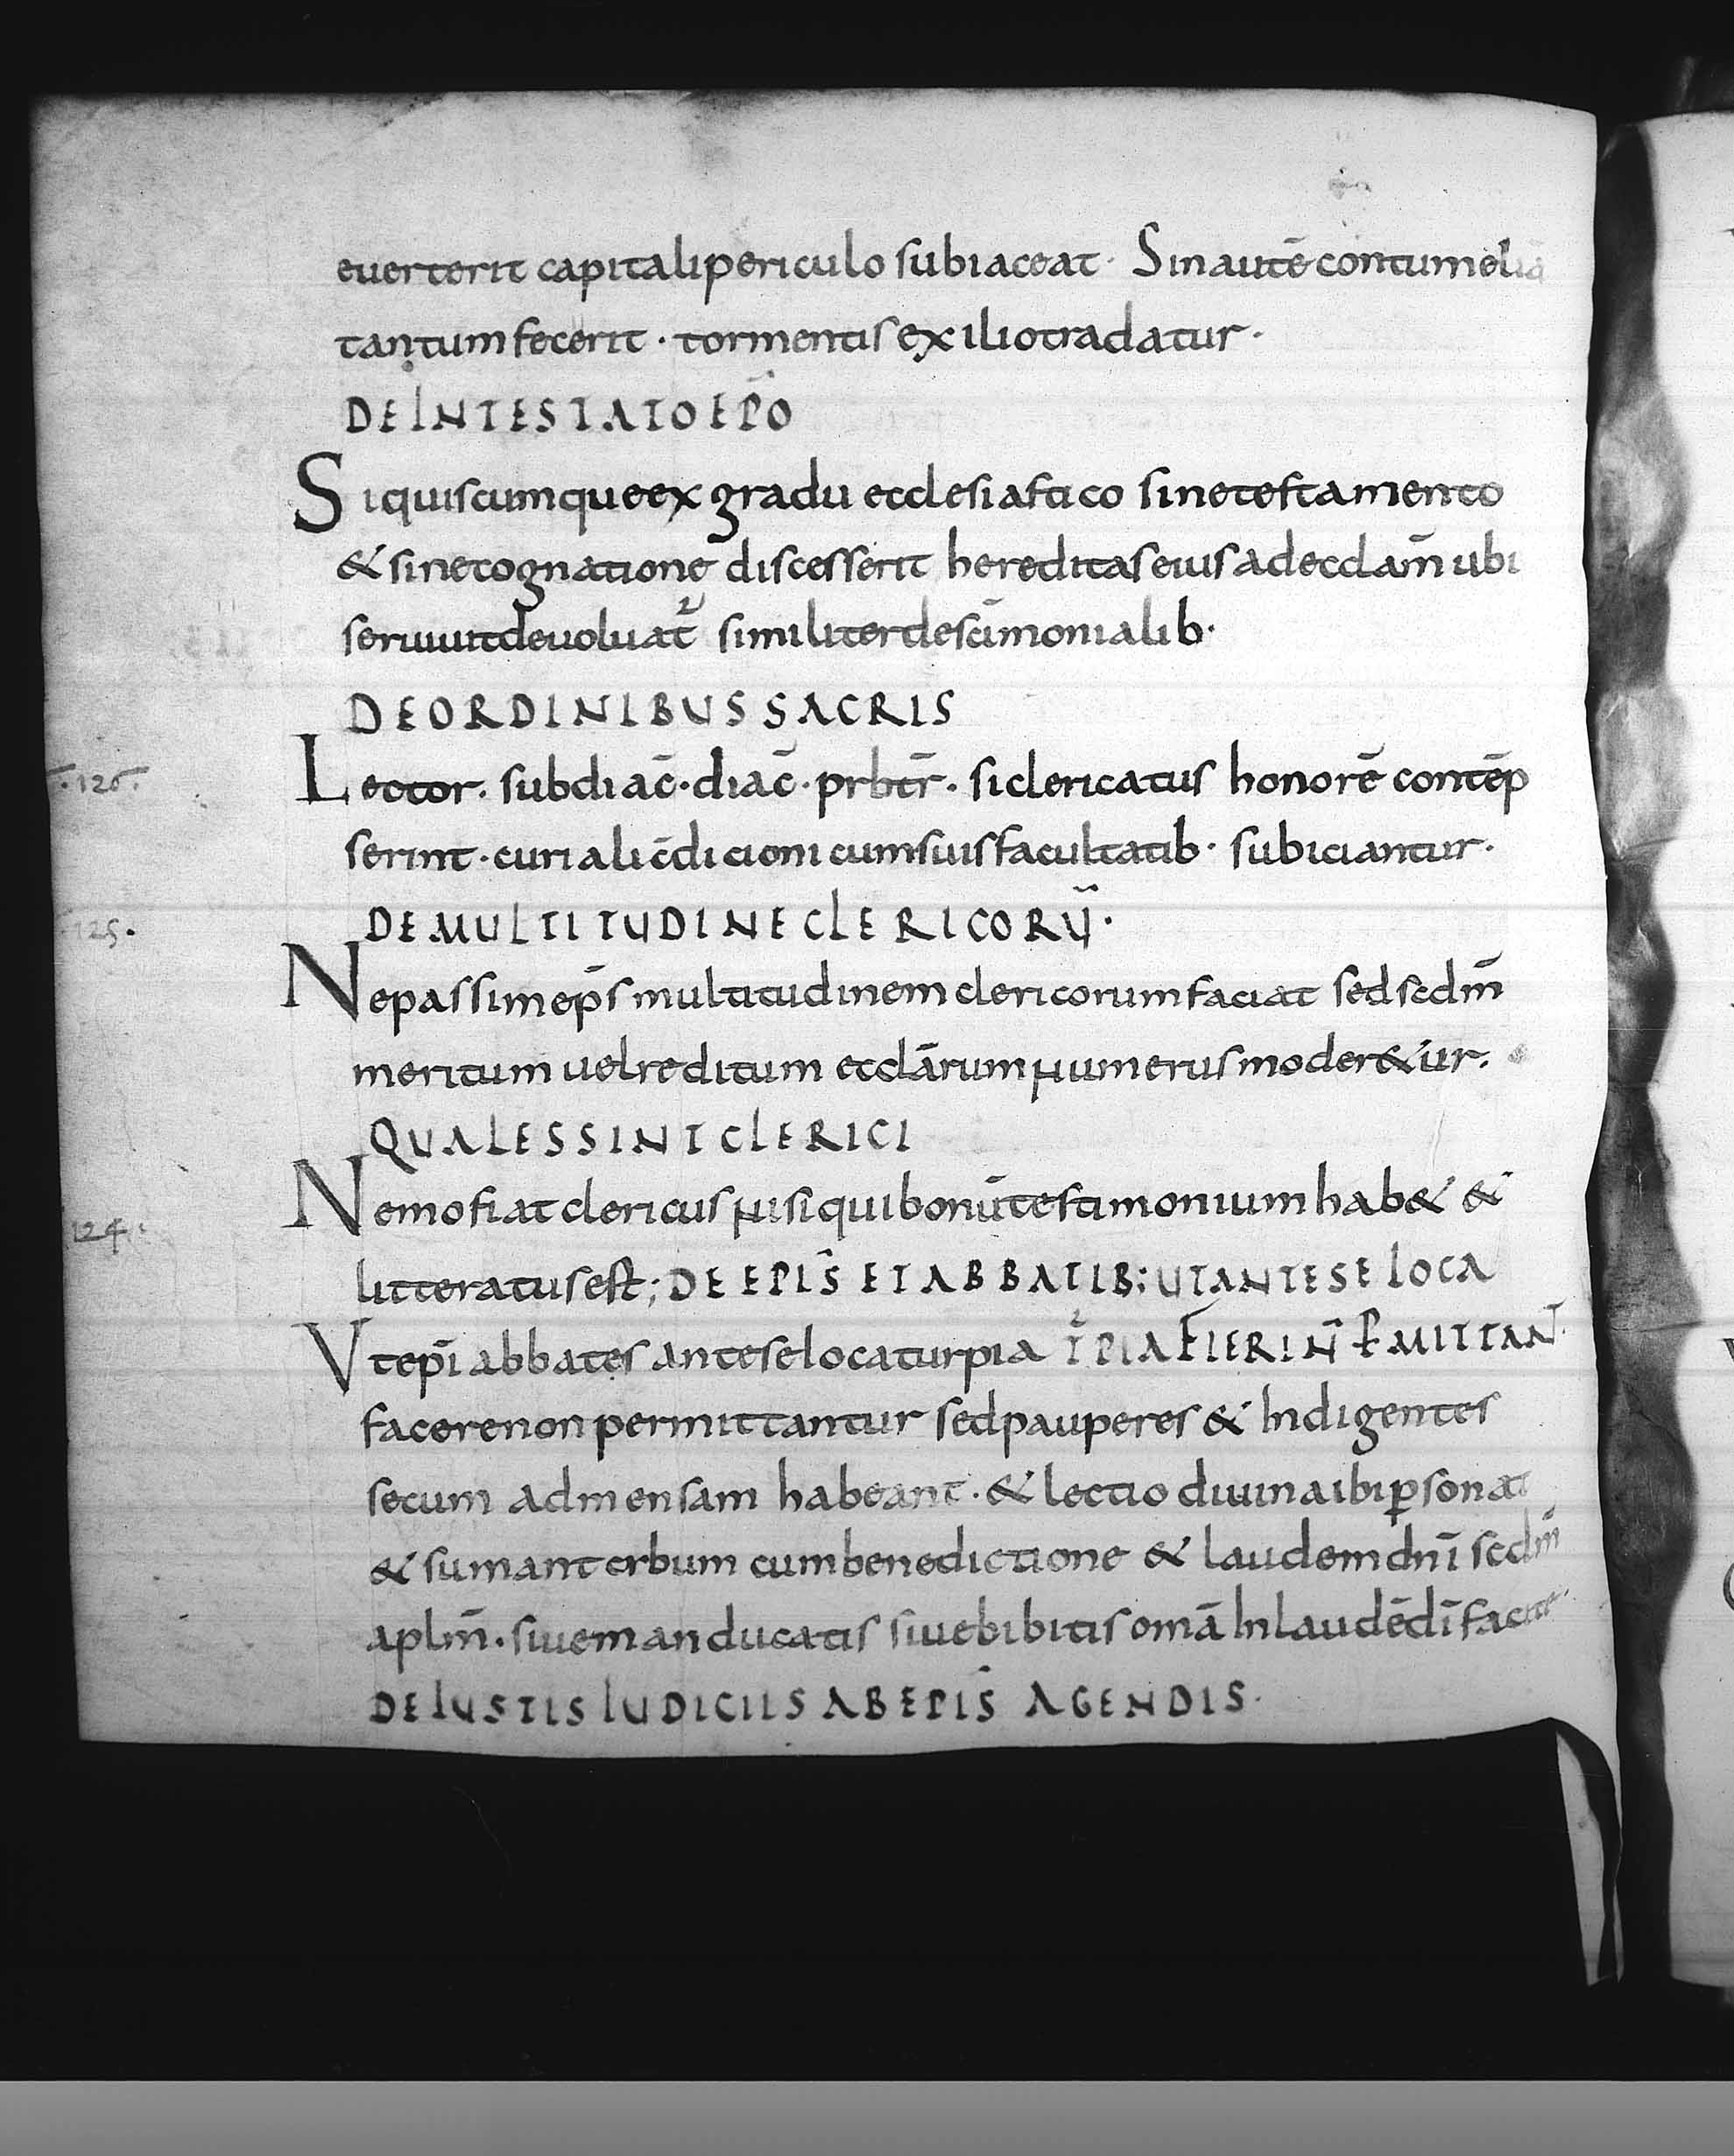 euerterit capitali periculo subiaceat· Sin autē contumeliā
tantum fecerit · tormentis exilio tradatur ·
DE INTESTATO EP̄O
Si quiscumque ex gradu ecclesiastico sine testamento
& sine cognatione discesserit hereditas eius ad eccl̄am ubi
seruiuit deuoluat̉ similiter de sc̄imonialib·
DE ORDINIBUS SACRIS
·126·
Lector. subdiac̄·diac̄·prbtr̄· si clericatus honorē contēp
serint·curiali c̄dicioni cum suis facultatib· subiciantur·
DE MULTITUDINE CLERICORŪ·
125·
Ne passim ep̄s multitudinem clericorum faciat sed scdm̄
meritum uel reditum eccl̄arum numerus moder&ur·
QUALES SINT CLERICI
Nemo fiat clericus nisi qui bonū testimonium hab& &
124·
litteratus est; DE EPIS̄ ET ABBATIB; UT ANTE SE LOCA
Ut ep̄i abbates ante se loca turpia T̉PIA FIERI N̄ P̱MITTAN̄·
facere non permittantur sed pauperes & Indigentes
secum ad mensam habeant·& lectio diuina ibi ꝑsonat
& sumant cybum cum benedictione & laudem dn̄i scdm̄
aplm̄·siue manducatis siue bibitis omā In laudē dī facite·
DE IUSTIS IUDICIIS AB EPIS̄ AGENDIS·